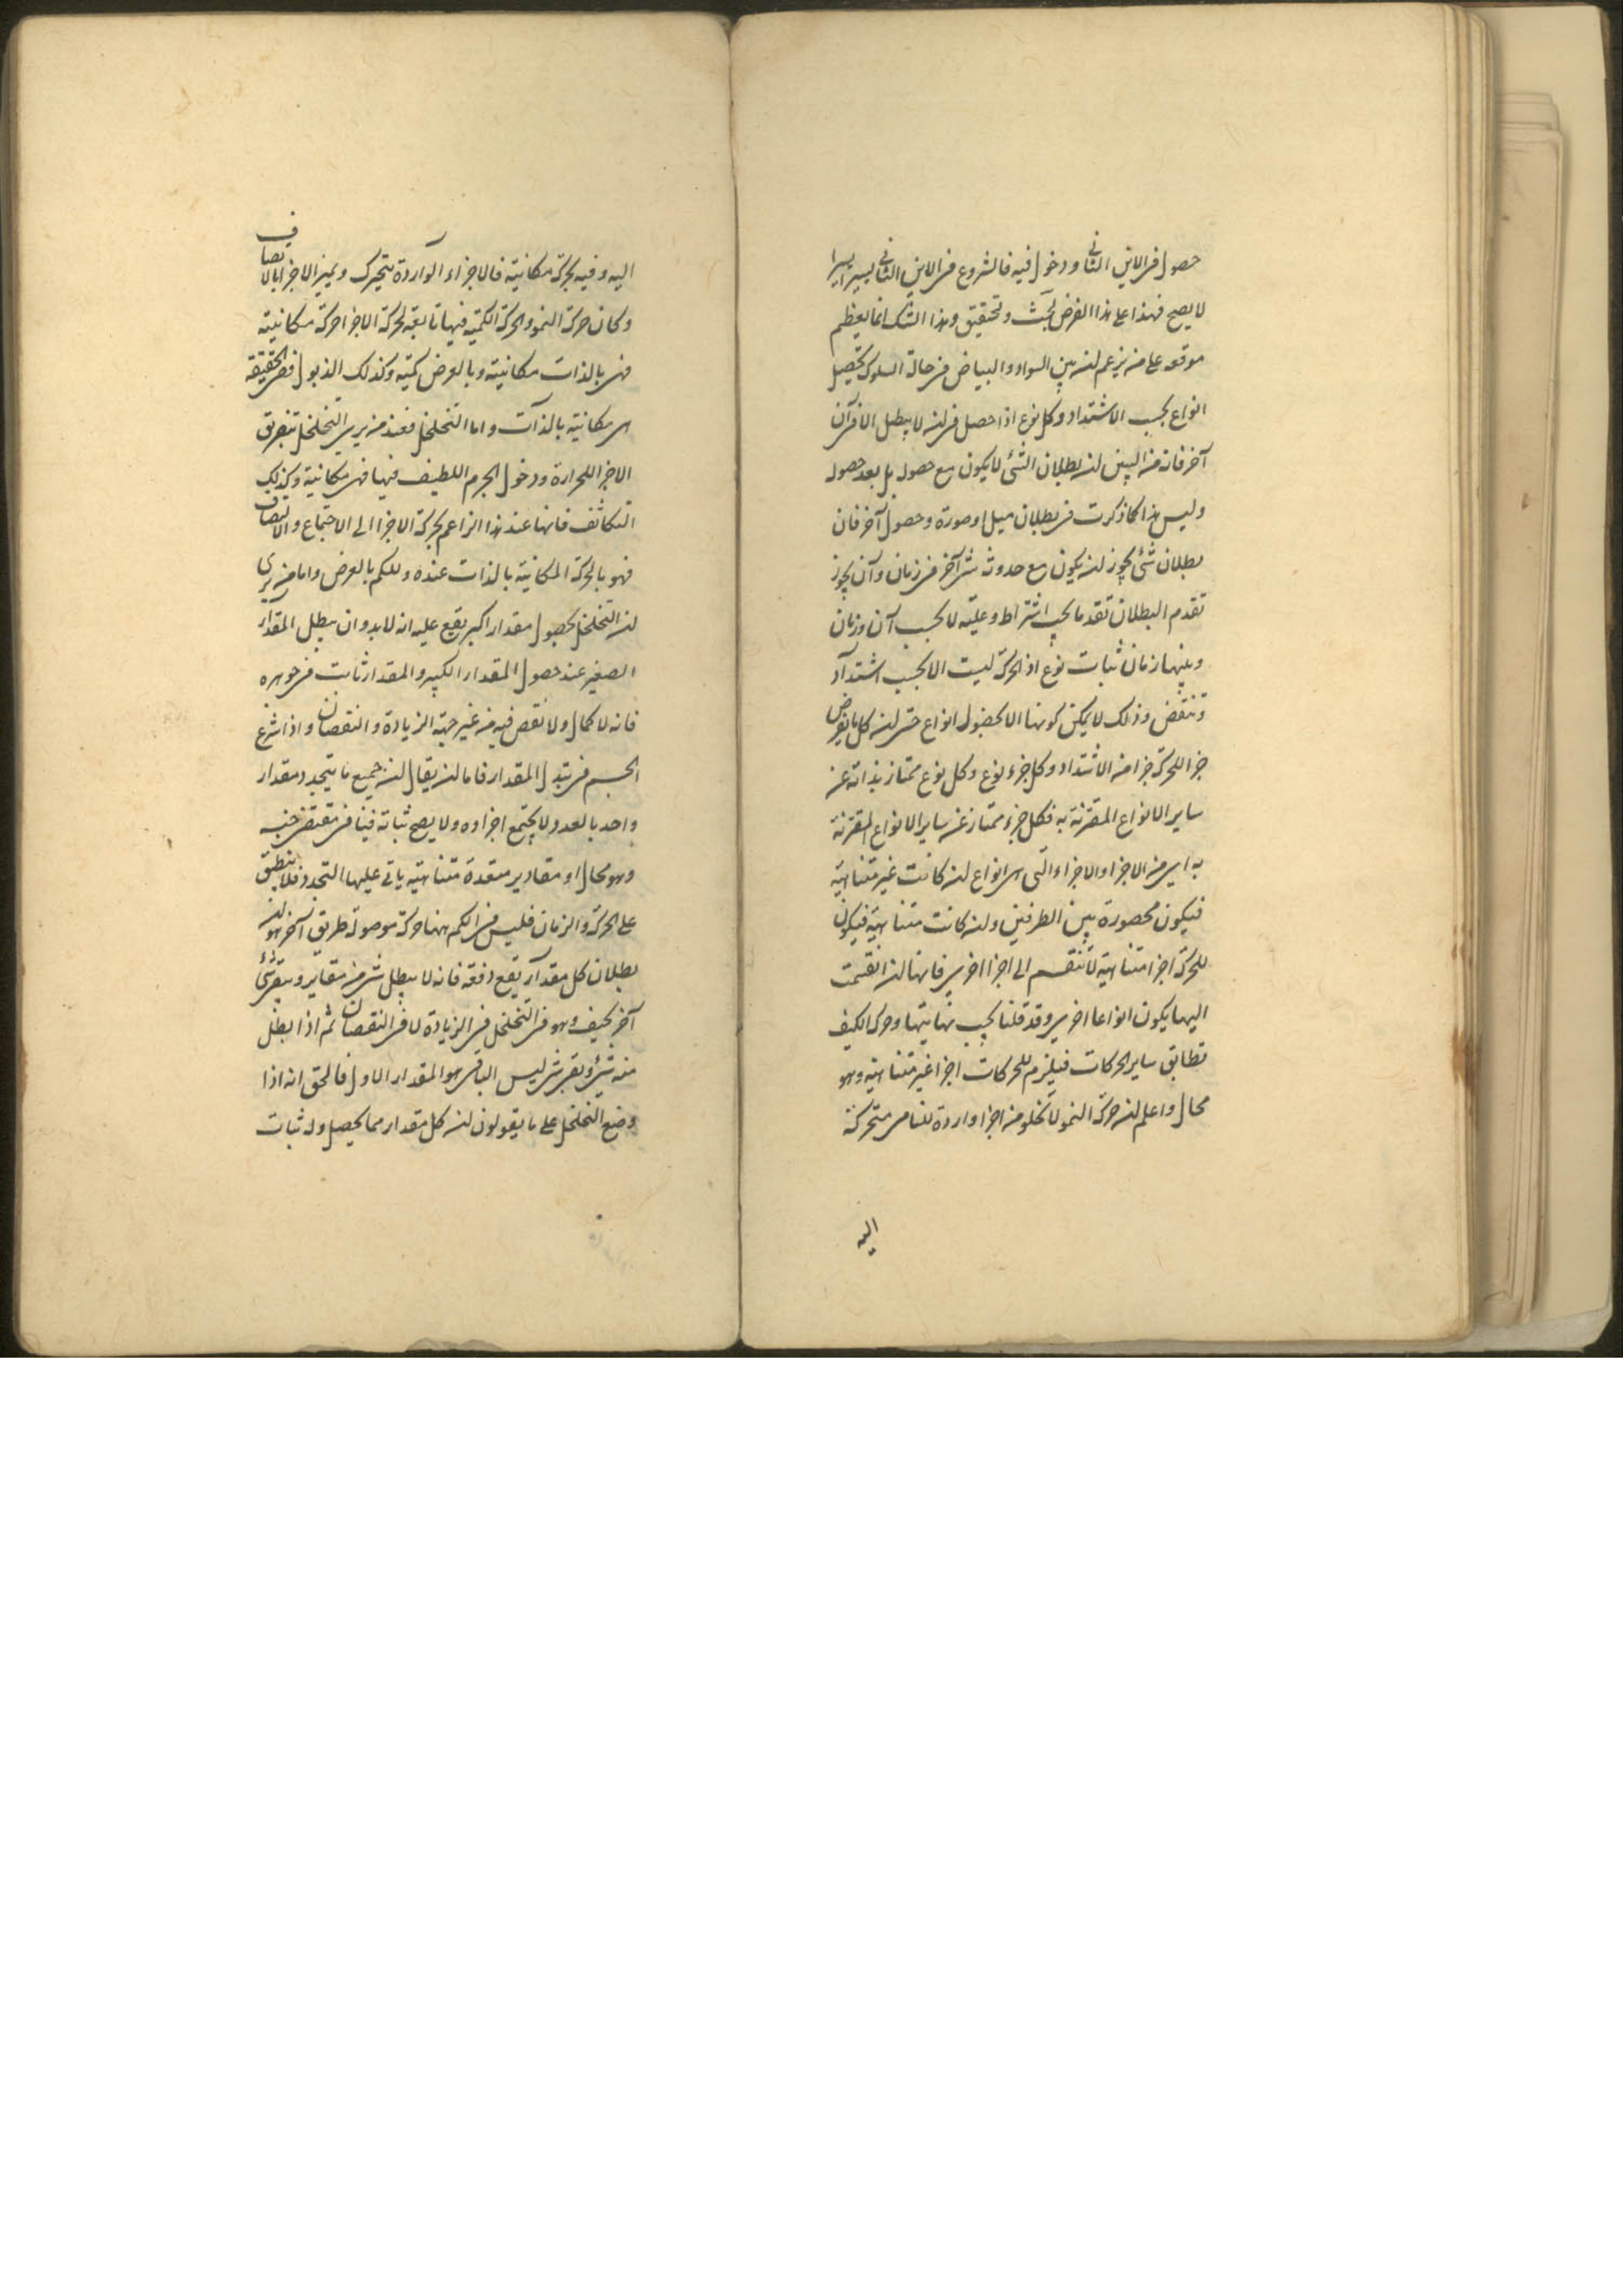 حصول فى الاين الثانى ودخول فيه فالشروع فى الاين الثانى يسيرا يسيرا
لا يصح فهذا على هذا الفرض بحث وتحقيق وهذا الشك انما يعظم
موقعه على من يزعم ان بين السواد والبياض فى حالة السلوك تحصيل
انواع بحسب الاشتداد وكل نوع اذا حصل فى ان لا يبطل الا فى آن
آخر فانه من البين ان بطلان الشئ لا يكون مع حصوله بل بعد حصوله
وليس هذا كما ذكرت فى بطلان ميل او صورة وحصول آخر فان
بطلان شئ يجوز ان يكون مع حدوث شى آخر فى زمان وآن يجوز
تقدم البطلان تقدما بحسب اشتراط وعلية لا بحسب آن وزمان
وبينهما زمان ثبات نوع اذ الحركة ليست الا بحسب اشتداد
وتنقض وذلك لا يمكن كونها الا بحصول انواع حتى ان كل ما يفرض
جزا للحركة جزا من الاشتداد وكل جزء نوع وكل نوع ممتاز بذاته عن
ساير الانواع المقترنة به فكل جزء ممتاز عن ساير الانواع المقترنة
به اى من الاجزا والاجزاء التى هى انواع ان كانت غير متناهية
فيكون محصورة بين الطرفين وان كانت متناهية فيكون
للحركة اجزا متناهية لا تنقسم الى اجزا اخرى فانها ان انقسمت
اليها يكون انواعا اخرى وقد قلنا يجب نهايتها وحركة الكيف
تطابق ساير الحركات فيلزم للحركات اجزا غير متناهية وهو
محال واعلم ان حركة النمو لا تخلو من اجزا واردة للنامى متحركة
اليه
اليه وفيه بحركة مكانية فالاجزاء الواردة يتحرك ويميز الاجزا بالاتصاف
وكان حركة النمو والحركة الكمية فيها تابعة لحركة الاجزا حركة مكانية
فهى بالذات مكانية وبالعرض كمية وكذلك الذبول فهى بالحقيقة
هى مكانية بالذات واما التخلخل فعند من يرى التخلخل بتفريق
الاجزا للحرارة ودخول الجرم اللطيف فيها فهى مكانية وكذلك
التكاثف فانها عند هذا الزاعم بحركة الاجزا الى الاجتماع والاتصاف
فهو بالحركة المكانية بالذات عنده وللكم بالعرض واما من يرى
ان التخلخل بحصول مقدار اكبر يقع عليه انه لابد وان يبطل المقدار
الصغير عند حصول المقدار الكبير والمقدار ثابت فى جوهره
فانه لا كمال ولا نقص فيه من غير جهة الزيادة والنقصان واذا شرع
الجسم فى تبدل المقدار فاما ان يقال ان جميع ما يتجدد مقدار
واحد بالعدد ولا يجتمع اجزاوه ولا يصح ثباته فينافى مقتضى جنسه
وهو محال او مقادير متعدة متناهية ياتى عليها التجدد فلا ينطبق
على الحركة والزمان فليس فى الكم ههنا حركة موصولة طريق آخر هو ان
بطلان كل مقدار يقع دفعة فانه لا يبطل شى من مقدار ويبقى شئ
آخر كيف وهو فى التخلخل فى الزيادة لا فى النقصان ثم اذا بطل
منه شئ وبقى شى ليس الباقى هو المقدار الاول فالحق انه اذا
وضع التخلخل على ما يقولون ان كل مقدار مما يحصل وله ثبات